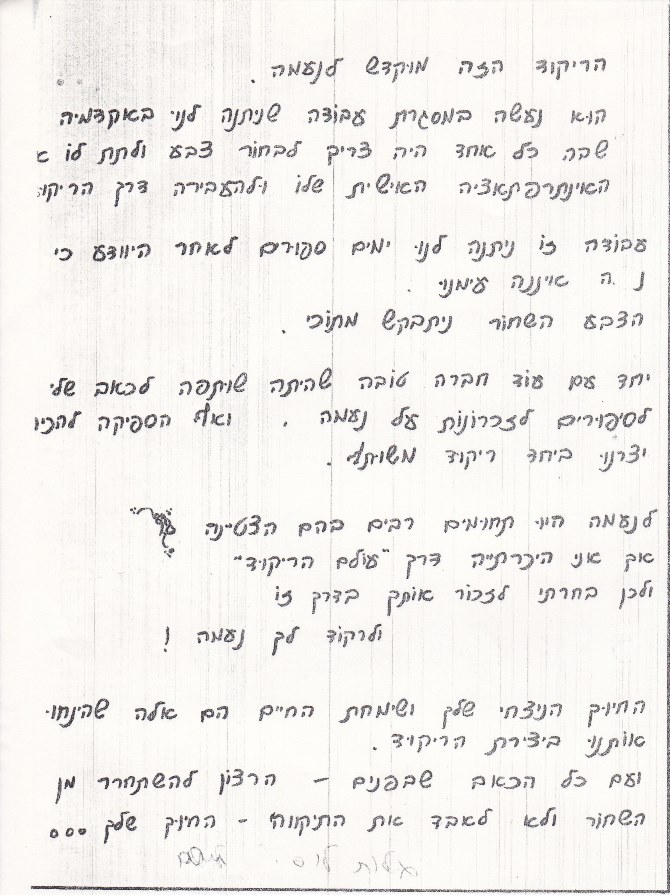 הריקוד הזה מוקדש לנעמה.
הוא נעשה במסגרת עבודה שניתנה לנו באקדמיה
שבה כל אחד היה צריך לבחור צבע ולתת לו א
האינתרפתאציה האישית שלו ולהעבירה דרך הריקו
עבודה זו ניתנה לנו ימים ספורים לאחר היוודע כי
נ ה איננה עימנו.
הצבע השחור ניתבקש מתוכי.
יחד עם עוד חברה טובה שהיתה שותפה לכאב שלי
לסיפורים לזכרונות על נעמה. ואף הספיקה להכיר
יצרנו ביחד ריקוד משותף.
לנעמה היו תחומים רבים בהם הצטיינה
אך אני היכרתיה דרך "עולם הריקוד"
ולכן בחרתי לזכור אותך בדרך זו
ולרקוד לך נעמה!
החיוך הניצחי שלך ושימחת החיים הם אלה שהינחו
אותנו ביצירת הריקוד.
ועם כל הכאב שבפנים – הרצון להשתחרר מן
השחור ולא לאבד את התיקווה – החיוך שלך...